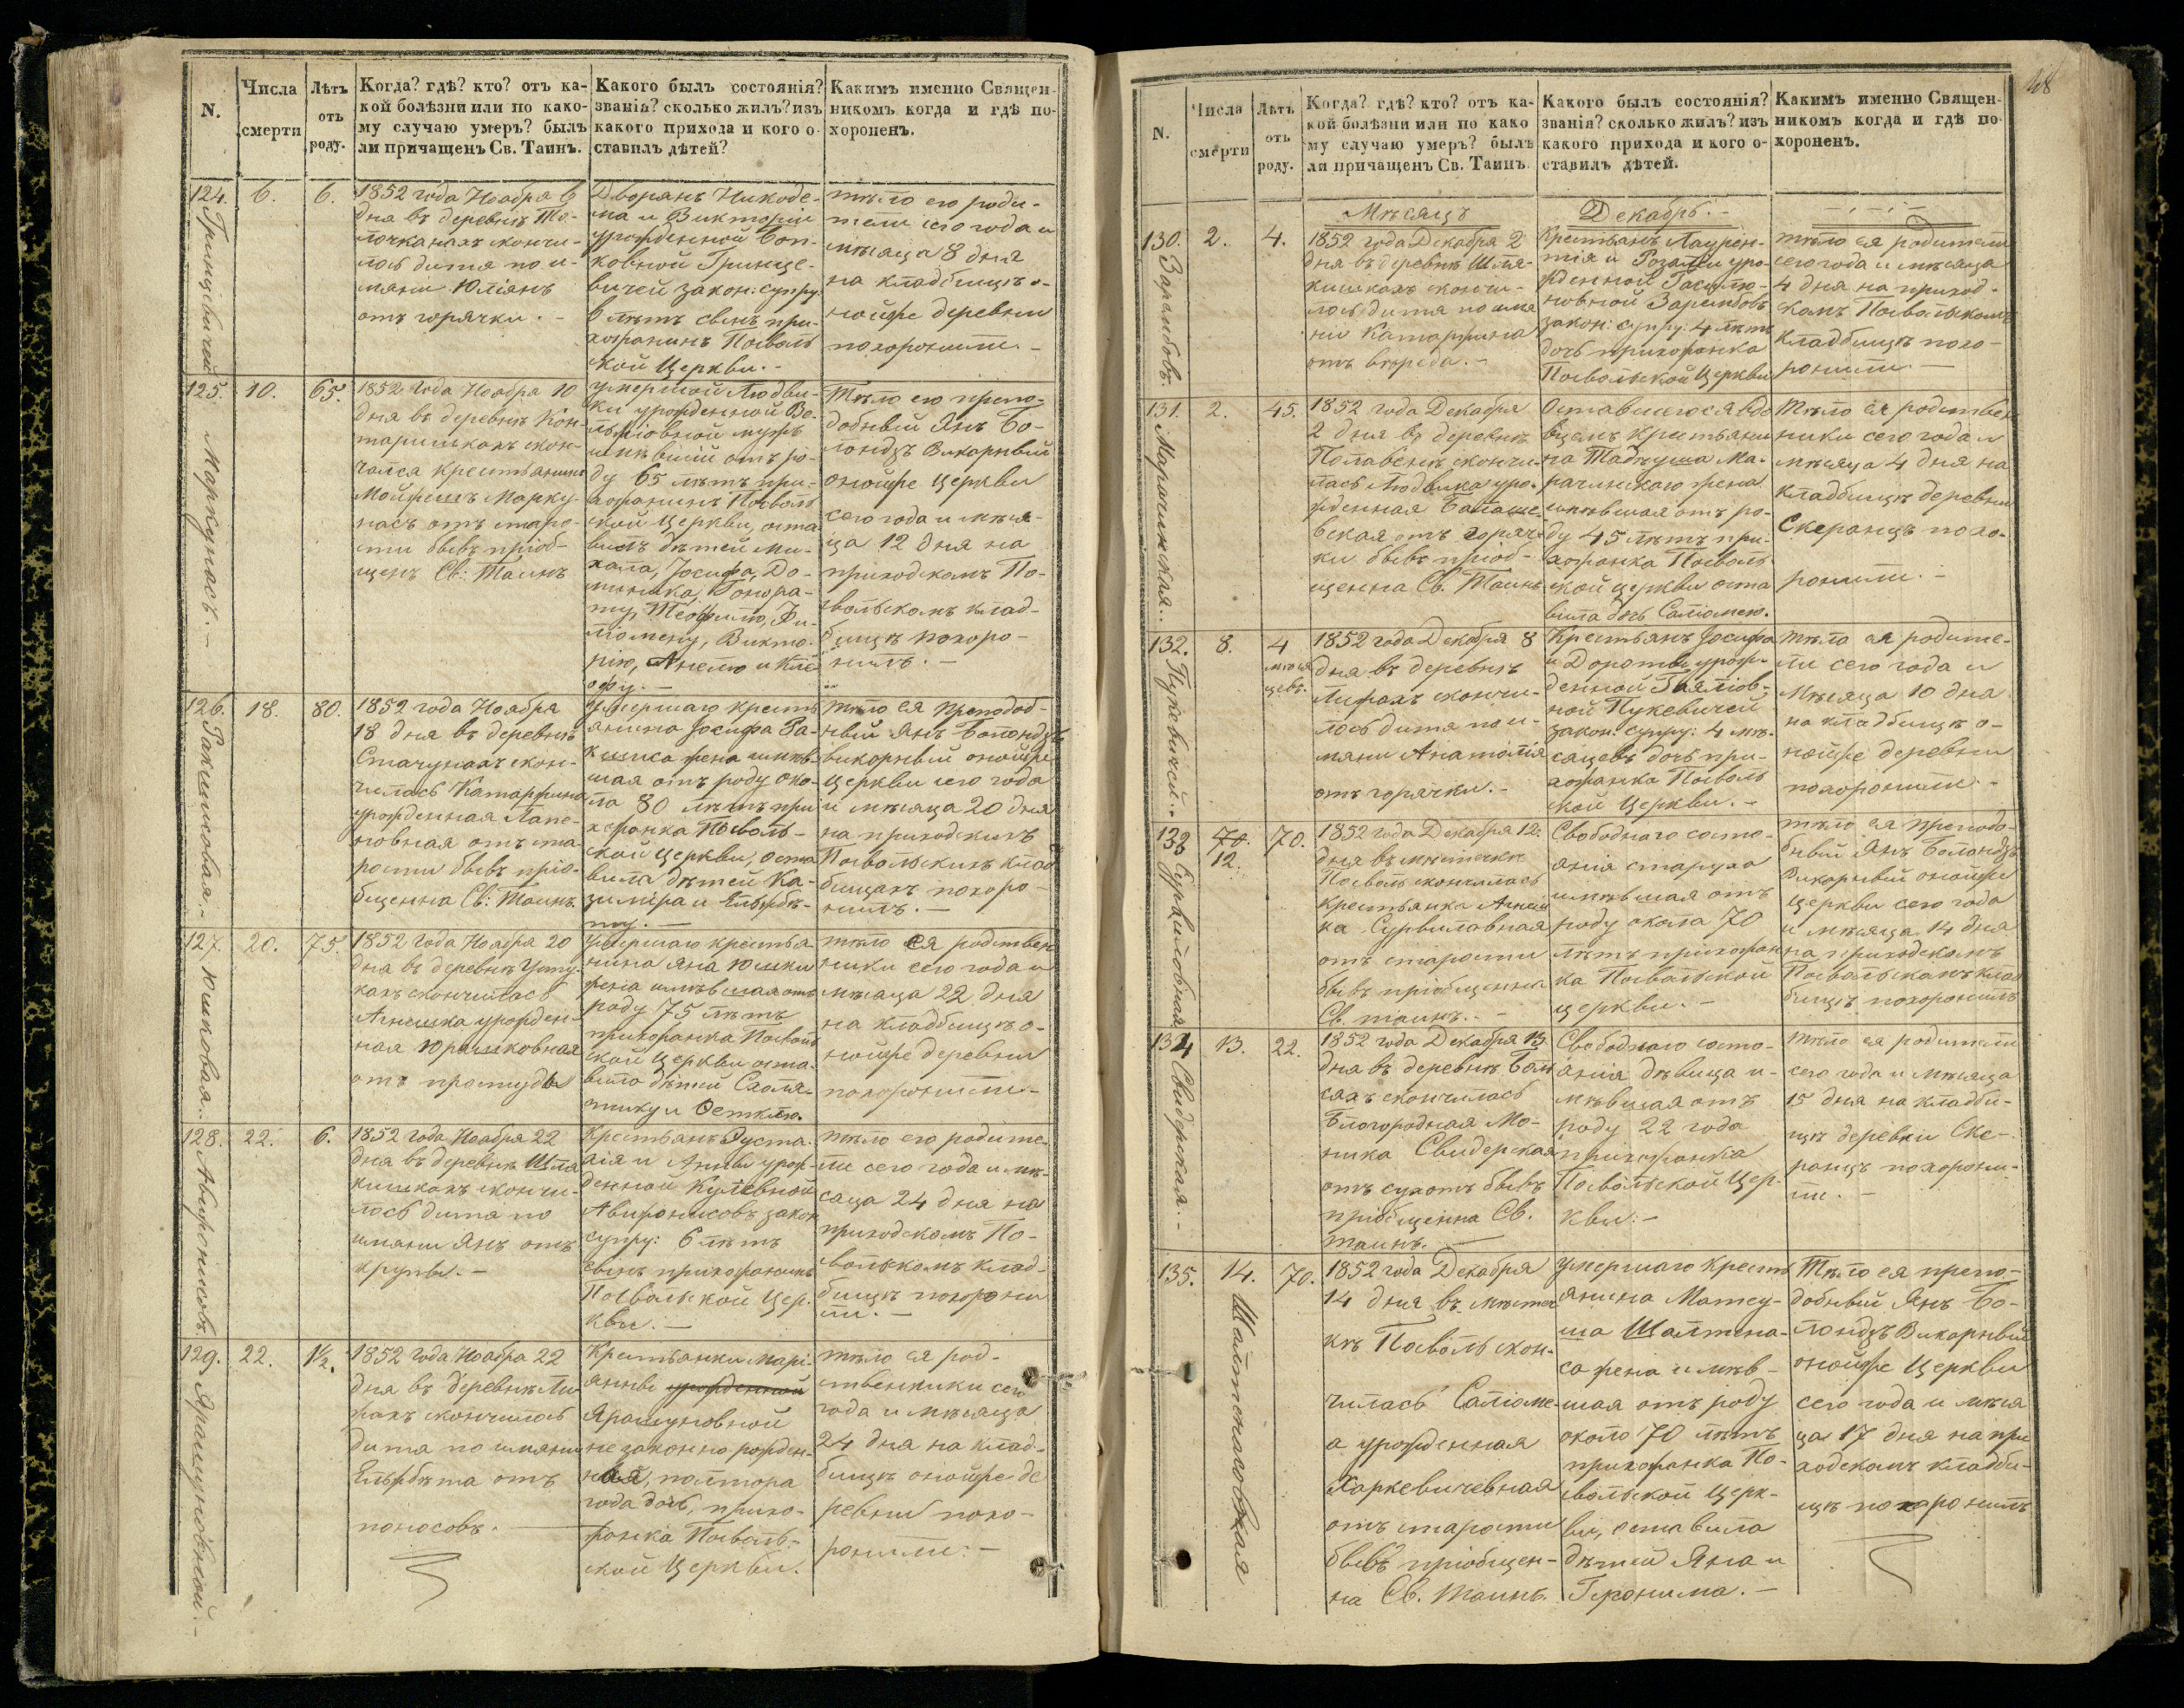 N.
Числа
смерти
Лѣтъ
отъ
роду.
Когда? гдѣ? кто? отъ ка-
кой болѣзни или по како-
му случаю умеръ? былъ
ли причащенъ Св. Таинъ.
Какого былъ состоянія?
званія? сколько жилъ? изъ
какого прихода и кого о-
ставилъ дѣтей?
Какимъ именно Священ-
никомъ когда и гдѣ по-
хороненъ.
124.
6.
6.
1852 года Ноября 6
дня въ деревнѣ
скончи-
лось дитя по и-
мяни Юліянъ
отъ горячки. -
Дворянъ Никоде-
ма и Викторіи
урожденной
Гринце-
вичей закон: супру:
6 лѣтъ сынъ при-
хожанинъ Посволь
ской Церкви. -
тѣло его роди-
тели сего года и
мѣсяца 8 дня
на кладбищѣ о-
нойже деревни
похоронили. -
125.
Маркунасъ. -
10.
65.
1852 года Ноября 10
дня въ деревнѣ
скон-
чался крестьянинъ
Марку-
насъ отъ старо-
сти бывъ пріоб-
щенъ Св: Таинъ
умершой Людви-
ки урожденной
мужъ
имѣвшій отъ ро-
ду 65 лѣтъ при-
хожанинъ Посволь
ской Церкви, оста
вилъ дѣтей Ми-
хала, Іосифа, До-
миника, Гонора-
ту, Теофилю, Фи-
ломену, Викто-
рію, Анелю и
Тѣло его препо-
добный Янъ Бо-
лондзь Викарный
онойже Церкви
сего года и мѣся-
ца 12 дня на
приходскомъ По-
свольскомъ клад-
бищѣ похоро-
нилъ. -
126.
18.
80.
1852 года Ноября
18 дня въ деревнѣ
Стачунахъ скон-
чилась Катаржина
урожденная
отъ ста-
рости бывъ пріо-
бщенна Св: Таинъ.
Умершаго кресть
янина Іосифа Ра-
жена имѣв-
шая отъ роду око-
ло 80 лѣтъ при
хожанка Посволь-
ской Церкви, оста
вила дѣтей Ка-
зиміра и Ельжбѣ-
ту. -
тѣло ея Преподоб-
ный Янъ Болондзь
викарный онойже
Церкви сего года
и мѣсяца 20 дня
на приходскихъ
Посвольскихъ клад
бищахъ похоро-
нилъ. -
127.
Юшковая. -
20.
75.
1852 года Ноября 20
дня въ деревнѣ
скончилась
Агнешка урожден-
ная
отъ простуды
Умершаго крестья-
нина Яна Юшки
жена имѣвшая отъ
роду 75 лѣтъ
прихожанка Посволь
ской Церкви оста-
вила дѣтей
и
тѣло ея родствен
ники сего года и
мѣсяца 22 дня
на кладбищѣ о-
нойже деревни
похоронили -
128.
22.
6.
1852 года Ноября 22
дня въ деревнѣ Шпа
кишкахъ скончи-
лось дитя по
имяни Янъ отъ
крупы. -
Крестьянъ Эуста-
хія и Анны урож-
денной
закон
супру: 6 лѣтъ
сынъ прихожанинъ
Посвольской Цер-
кви. -
тѣло его родите-
ли сего года и мѣ-
сяца 24 дня на
приходскомъ По-
свольскомъ клад-
бищѣ похорони
ли. -
129.
22.
1½.
1852 года Ноября 22
дня въ деревнѣ Ли-
фахъ скончилось
дитя по имяни
Ельжбѣта отъ
поносовъ. -
Крестьянки Марі-
янны урожденной
Ярашуновной
незаконно рожден-
ная, полтора
года дочь, прихо-
жанка Посволь-
ской Церкви.
тѣло ея род-
ственники сего
года и мѣсяца
24 дня на клад-
бищѣ онойже де
ревни похо-
ронили. -
N.
Числа
смерти
Лѣтъ
отъ
роду.
Когда? гдѣ? кто? отъ ка-
кой болѣзни или по како
му случаю умеръ? былъ
ли причащенъ Св. Таинъ.
Какого былъ состоянія?
званія? сколько жилъ? изъ
какого прихода и кого о-
ставилъ дѣтей.
Какимъ именно Священ-
никомъ когда и гдѣ по-
хороненъ.
Мѣсяцъ
Декабрь. -
130.
2.
4.
1852 года Декабря 2
дня въ деревнѣ Шпа-
кишкахъ скончи-
лось дитя по имя
ни Катаржина
отъ вереда. -
Крестьянъ Лаурен-
тія и Розаліи уро-
жденной
новной
закон: супру: 4 лѣтъ
дочь прихожанка
Посвольской Церкви
тѣло ея родители
сего года и мѣсяца
4 дня на приход-
скомъ Посвольскомъ
кладбищѣ похо-
ронили. -
131.
2.
45.
1852 года Декабря
2 дня въ деревнѣ
скончи-
лась Людвика уро-
жденная
отъ горяч-
ки бывъ пріоб-
щенна Св. Таинъ
Оставшегося вдо
вцемъ крестьяни
на Тадеуша Ма-
рачинскаго жена
имѣвшая отъ ро-
ду 45 лѣтъ при-
хожанка Посволь
ской Церкви оста
вила дочь Саломею.
Тѣло ея родствен
ники сего года и
мѣсяца 4 дня на
кладбищѣ деревни
похо-
ронили. -
132.
Пукевичей. -
8.
4
мѣся
цевъ.
1852 года Декабря 8
дня въ деревнѣ
Лифахъ скончи-
лось дитя по и-
мяни Анатолія
отъ горячки. -
Крестьянъ Іосифа
и Дороты урож-
денной
ной Пукевичей
закон: супру: 4 мѣ-
сяцевъ дочь при-
хожанка Посволь
ской Церкви. -
тѣло ея родите-
ли сего года и
Мѣсяца 10 дня
на кладбищѣ о-
нойже деревни
похоронили. -
133
70.
12.
70.
1852 года Декабря 12.
дня въ мѣстечкѣ
Посволь скончилась
крестьянка
отъ старости
бывъ пріобщенна
Св. таинъ. -
Свободнаго состо-
янія старуха
имѣвшая отъ
роду около 70
лѣтъ прихожан
ка Посвольской
церкви. -
тѣло ея преподо-
бный Янъ Болондзь
Викарный онойже
Церкви сего года
и мѣсяца 14 дня
на приходскомъ
Посвольскомъ клад
бищѣ похоронилъ
134
Свидерская. -
13.
22.
1852 года Декабря 13
дня въ деревнѣ
скончилась
Благородная Мо-
ника Свидерская
отъ сухотъ бывъ
пріобщенна Св.
Таинъ. -
Свободнаго состо-
янія дѣвица и-
мѣвшая отъ
роду 22 года
прихожанка
Посвольской Цер-
кви. -
тѣло ея родители
сего года и мѣсяца
15 дня на кладби-
щѣ деревни
похорони-
ли. -
135.
14.
70.
1852 года Декабря
14 дня въ мѣстеч
кѣ Посволь скон-
чилась Саломе-
а урожденная
Харкевичевная
отъ старости
бывъ пріобщен-
на Св. Таинъ.
Умершаго Кресть
янина Матеу-
ша Шалтена-
са жена имѣв-
шая отъ роду
около 70 лѣтъ
прихожанка По-
свольской Церк-
ви, оставила
дѣтей Яна и
Геронима. -
Тѣло ея препо-
добный Янъ Бо-
лондзь Викарный
онойже Церкви
сего года и мѣся
ца 17 дня на при
ходскомъ кладби-
щѣ похоронилъ